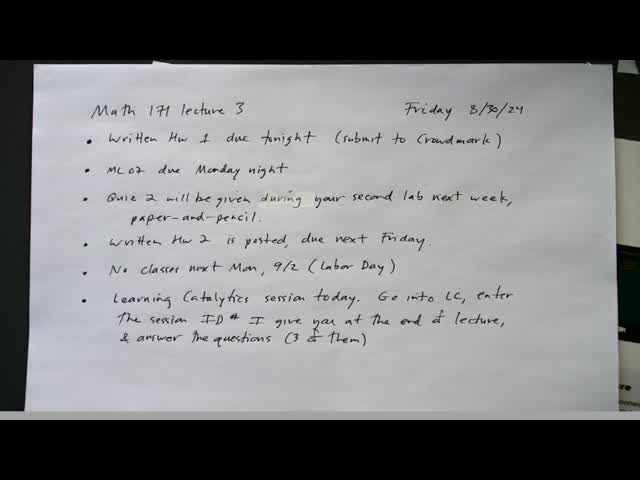 Math 171 lecture 3 Friday 8/30/24
• Written HW 1 due tonight (submit to Crowdmark)
• ML02 due Monday night
• Quiz 2 will be given during your second lab next week,
paper-and-pencil.
• Written HW 2 is posted, due next Friday.
• No classes next Mon, 9/2 (Labor Day)
• Learning Catalytics session today. Go into LC, enter
the session ID # I give you at the end of lecture,
& answer the questions (3 of them)